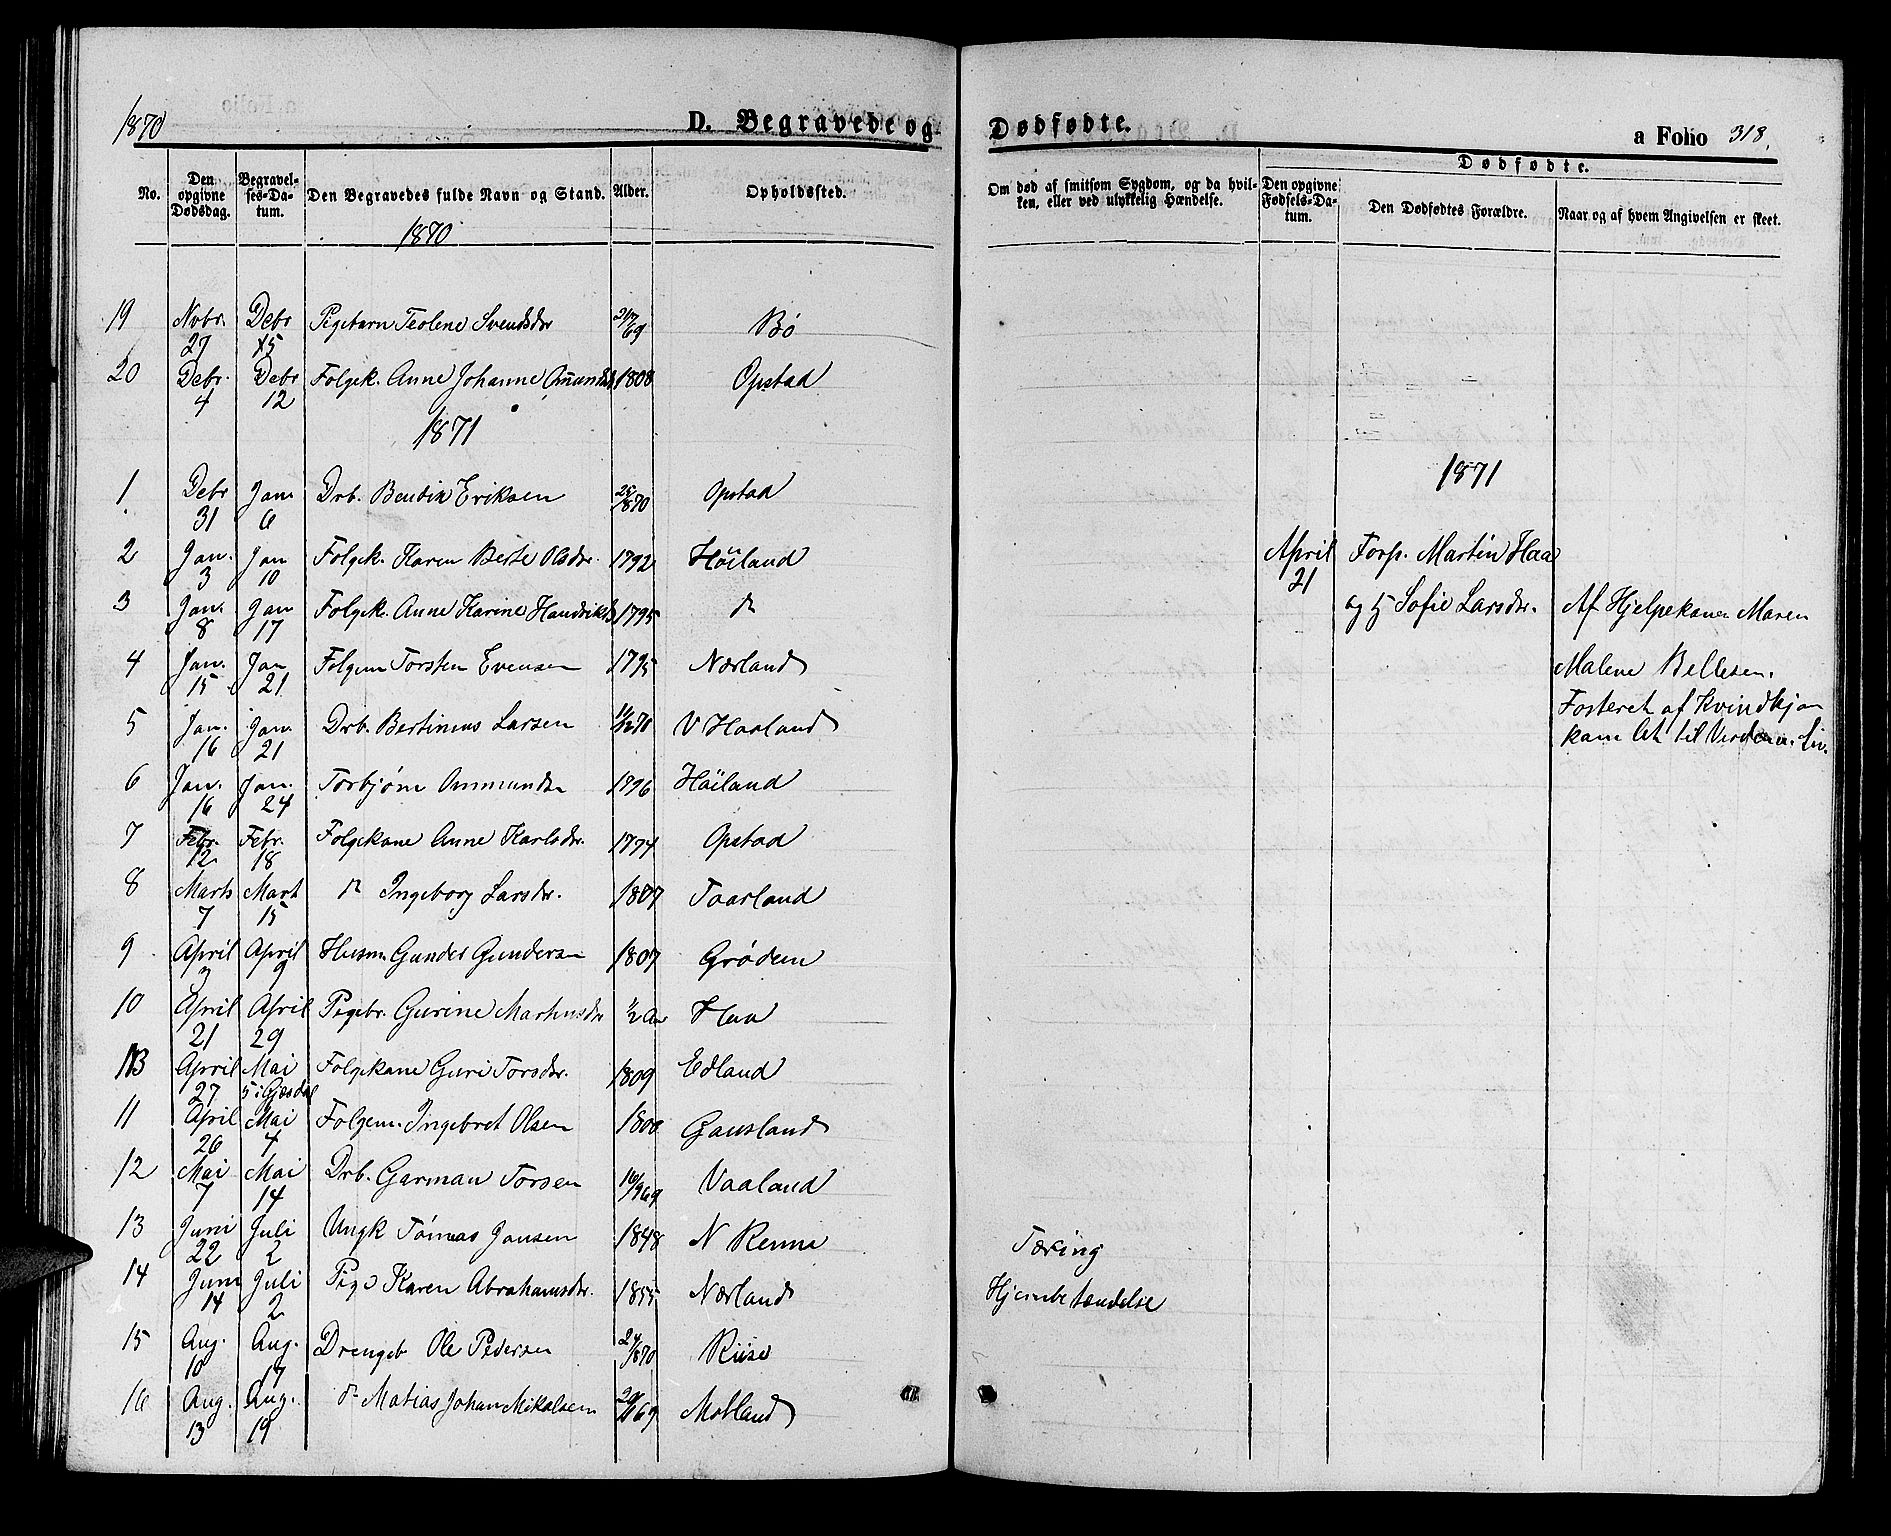 1870 D. Begravede og Dødfødte. a Folio 318.
No. Den opgivne Dødsdag. Begravelses-Datum. Den Begravedes fulde Navn og Stand. Alder. Opholdssted. Om død af smitsom Sygdom, og da hvilken, eller ved ulykkelig Hændelse. Dødfødte. Den opgivne Fødsels-Datum. Den Dødfødtes Forældre. Naar og af hvem Angivelsen er skeet.
1870
19 Nvbr. 27 Debr 15 Pigebarn Teoline Svendsdr Bø
20 Debr. 4 Debr 12 Folgek. Anne Johanne Omunds 1808 Opstad
1871
1 Debr 31 Jan 6 Drb. Bendik Eriksen Opstad
2 Jan. 3 Jan 10 Folgek. Karen Berte Olsdr. 1792 Høiland
3 Jan. 8 Jan 17 Folgek. Anne Karine Hendriksd 1795 do
4 Jan. 15 Jan 21 Folgem Torsten Evensen 1795 Nærland
5 Jan. 16 Jan. 21 Drb. Bertinius Larsen V Haaland
6 Jan. 16 Jan. 24 Torbjørn Ommundsen 1796 Høiland
7 Febr. 12 Febr. 18 Folgekone Anne Karlsdr. 1774 Opstad
8 Marts 7 Mart 15 do Ingeborg Larsdr. 1807 Taarland
9 April 3 April 9 Husm Gunder Gundersen 1807 Grødem
10 April 21 April 29 Pigebr. Gurine Martinsdr 1/2 Aar Haa
13 April 27 Mai 5 i Gjesdal Folgekone Guri Torsdr. 1809 Edland
11 April 26 Mai 4 Folgem. Ingebret Olsen 1800 Gausland
12 Mai 7 Mai 14 Drb. Garman Torsen 16/9 69 Vaaland
13 Juni 22 Juli 2 Ungk Tønnes Jonsen 1848 N Renna Tæring
14 Juni 14 Juli 2 Pige Karen Abrahamsdr. 1855 Nærland Hjernebetændelse
15 Aug. 10 Aug. 17 Drengeb Ole Pedersen Riise
16 Aug. 13 Aug. 19 do Matias Johan Mikalsen Motland
1871
April 21 Forp. Martin Haa
og H Sofie Larsdr. Af Hjelpekonen Maren
Malene Bellesen.
Fosteret af Kvindkjøn
kom let til Verden u. Liv.